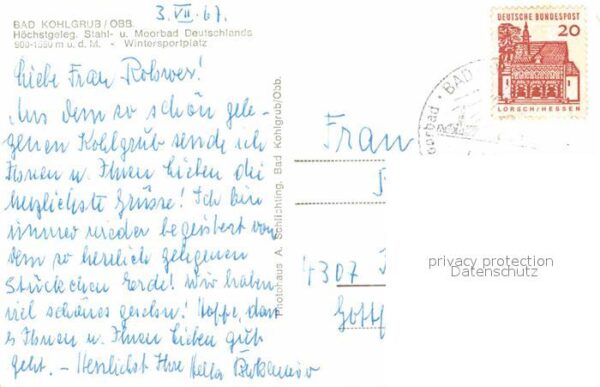 3. VII. 67.
BAD KOHLGRUB/OBB.
Höchstgeleg. Stahl- u. Moorbad Deutschlands
900-1550 m ü. d. M. - Wintersportplatz
Liebe Frau Rohwer!
Aus dem so schön gele-
genen Kohlgrub sende ich
Ihnen u. Ihren Lieben die
herzlichste Grüsse! Ich bin
immer wieder begeistert von
dem so herrlich gelegenen
Stückchen Erde! Wir haben
viel schönes gesehn! Hoffe, dass
es Ihnen u. Ihren Lieben gut
geht. - Herzlichst Ihre Hella
Photohaus A. Schlichting, Bad Kohlgrub/Obb.
DEUTSCHE BUNDESPOST
20
LORSCH/HESSEN
BAD
oorbad
Frau
4307
Gottf
privacy protection
Datenschutz